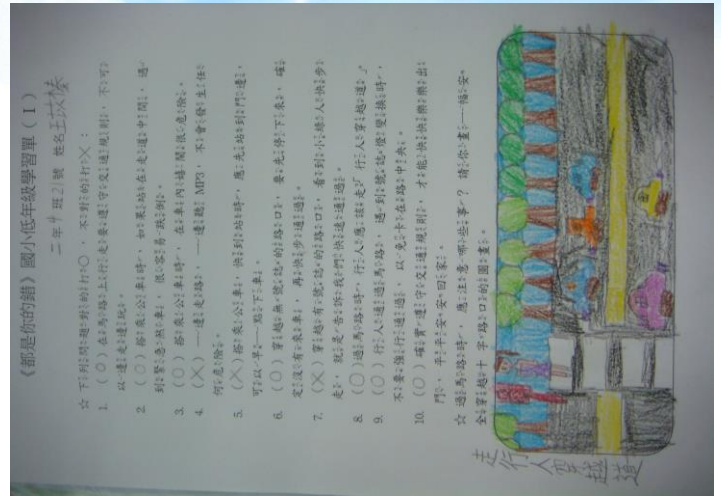 《都是你的錯》國小低年級學習單(I)
二年4班21號 姓名王苡蓁
☆ 下列問題對的打〇,不對的打X:
1. (〇)在馬路上行走要遵守交通規則,不可
以邊走邊玩。
2. (〇)搭乘公車時,如果站在走道中間,遇
到緊急煞車,很容易跌倒。
3. (〇)搭乘公車時,在車內嬉鬧很危險。
4. (X)一邊走路,一邊聽 MP3,不會發生任
何危險。
5. (X)搭乘公車,快到站時,應先站到門邊,
可以早一點下車。
6. (〇)穿越無號誌的路口,要先停下來,確
定沒有來車,再快步通過。
7. (X)穿越有號誌的路口,看到小綠人快步
走,就是告訴我們快速通過。
8. (〇)過馬路時,行人應該走「行人穿越道」。
9. (〇)行人通過馬路,遇到號誌燈變換時,
不要強行通過,以免卡在路中央。
10. (〇)確實遵守交通規則,才能快快樂樂出
門,平平安安回家。
☆ 過馬路時,應注意哪些事?請你畫一幅安
全穿越十字路口的圖畫。
走行人穿越道